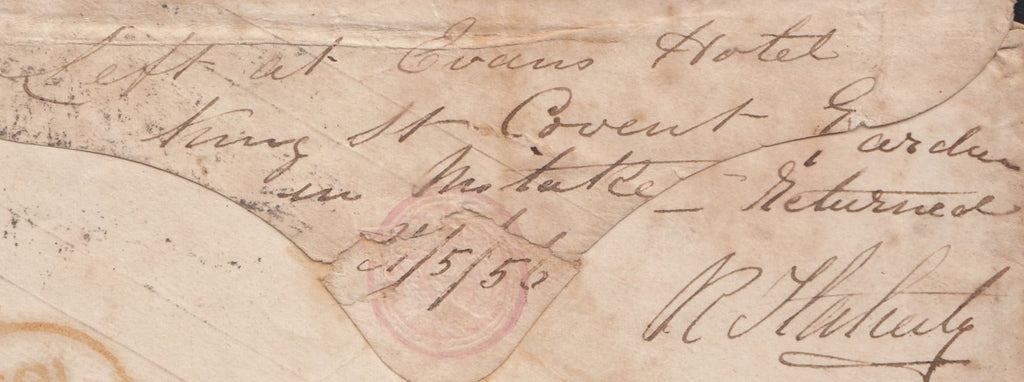 Left at Evans Hotel
King St Covent Garden
in Mistake – Returned
/5/5
R Flaherty